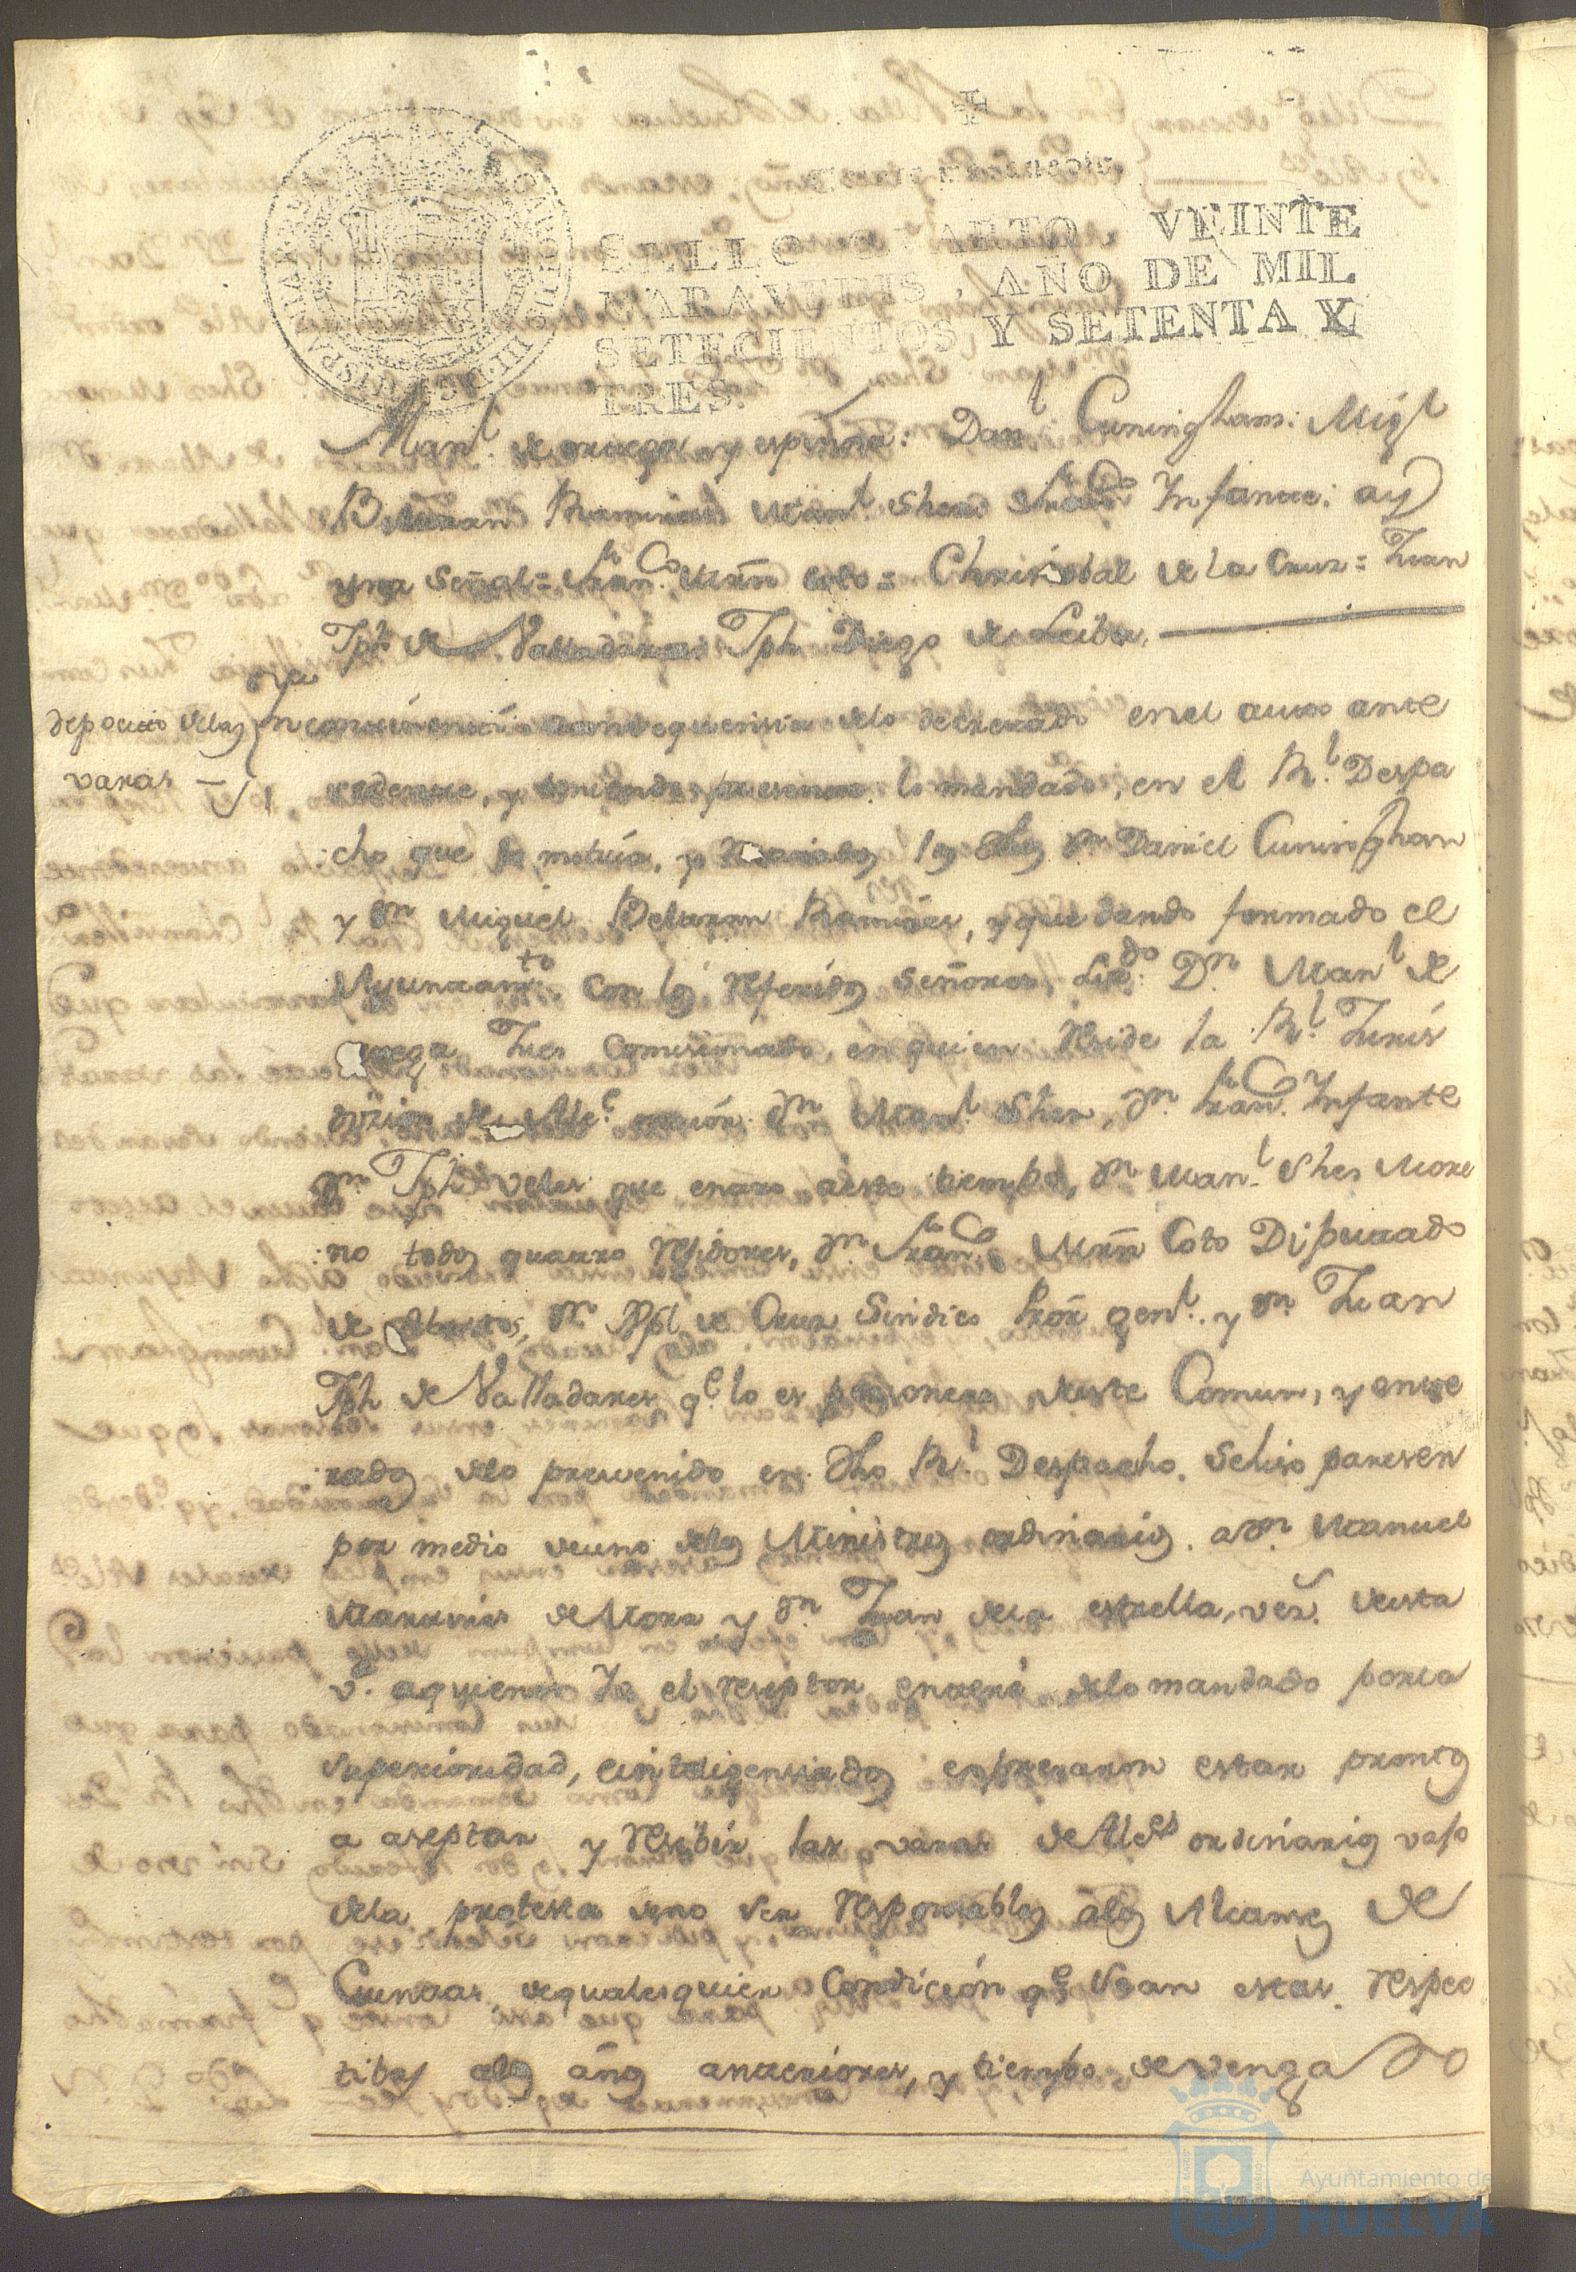 SELLO QUARTO, VEINTE
MARAVEDIS, AÑO DE MIL
SETECIENTOS Y SETENTA Y
TRES.
Man.l de ortega y espinna: Dan.l Cuningham: Mig.l
Beltran Ramirez Man.l Shez Fran.co Infante: ay
una Señal = Fran.co Mrñ Coto = Christobal de la Cruz = Juan
Jph de Valladares Jph Diego de Leiba.
deposicio delas
varas
En continenti consequensia delo decretado en el auto ante
sedente, y teniendo presente lo mandado, en el R.l Despa
cho que lo motiva, y los dhos Dn Daniel Cuningham
y Dn Miguel Beltran Ramires, y quedando formado el
Ayuntam.to con los referidos Señores, Lis.do Dn Man.l de
ortega Jues Comisionado, en quien reside la R.l Juris
dizion Dn Man.l Shez, Dn Fran.co Infante
Dn Jph Veles que entro a este tiempo, Dn Man.l Shes More
no todos quatro residores, Dn Fran.co Mrñ Coto Diputado
de Abastos, Dn Xptl de Cruz Sindico Pror gen.l y Dn Juan
Jph de Valladares q.e lo es personero deste Comun, y ente
rados delo prevenido en dho R.l Despacho. Sehiso pareser
por medio deuno delos Ministros ordinarios. a Dn Manuel
Martinez de Mora y Dn Juan dela estrella, ves. desta
v.a aquienes Yo el reseptor enteré delo mandado porla
superioridad, einteligensiados expresaron estar prontos
a aseptar y resibir las varas de Alc.des ordinarios vaso
dela protesta deno ser responsables alos Alcanses de
Cuentas, dequalesquier Condición q.e sean estas. respec
tibas alos años anteriores, y tiempo devengado
Ayuntamiento de
HUELVA